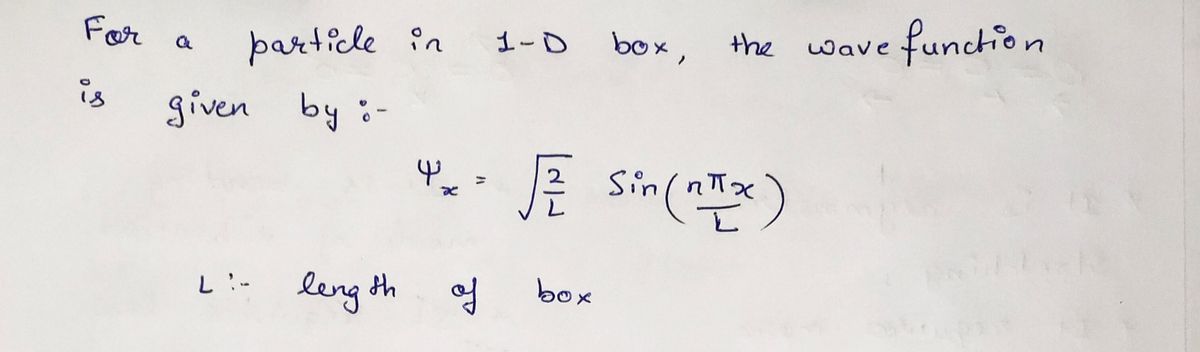 For a particle in 1-D box, the wave function
is given by :-
Ψx = √2/L Sin(nπx/L)
L :- length of box